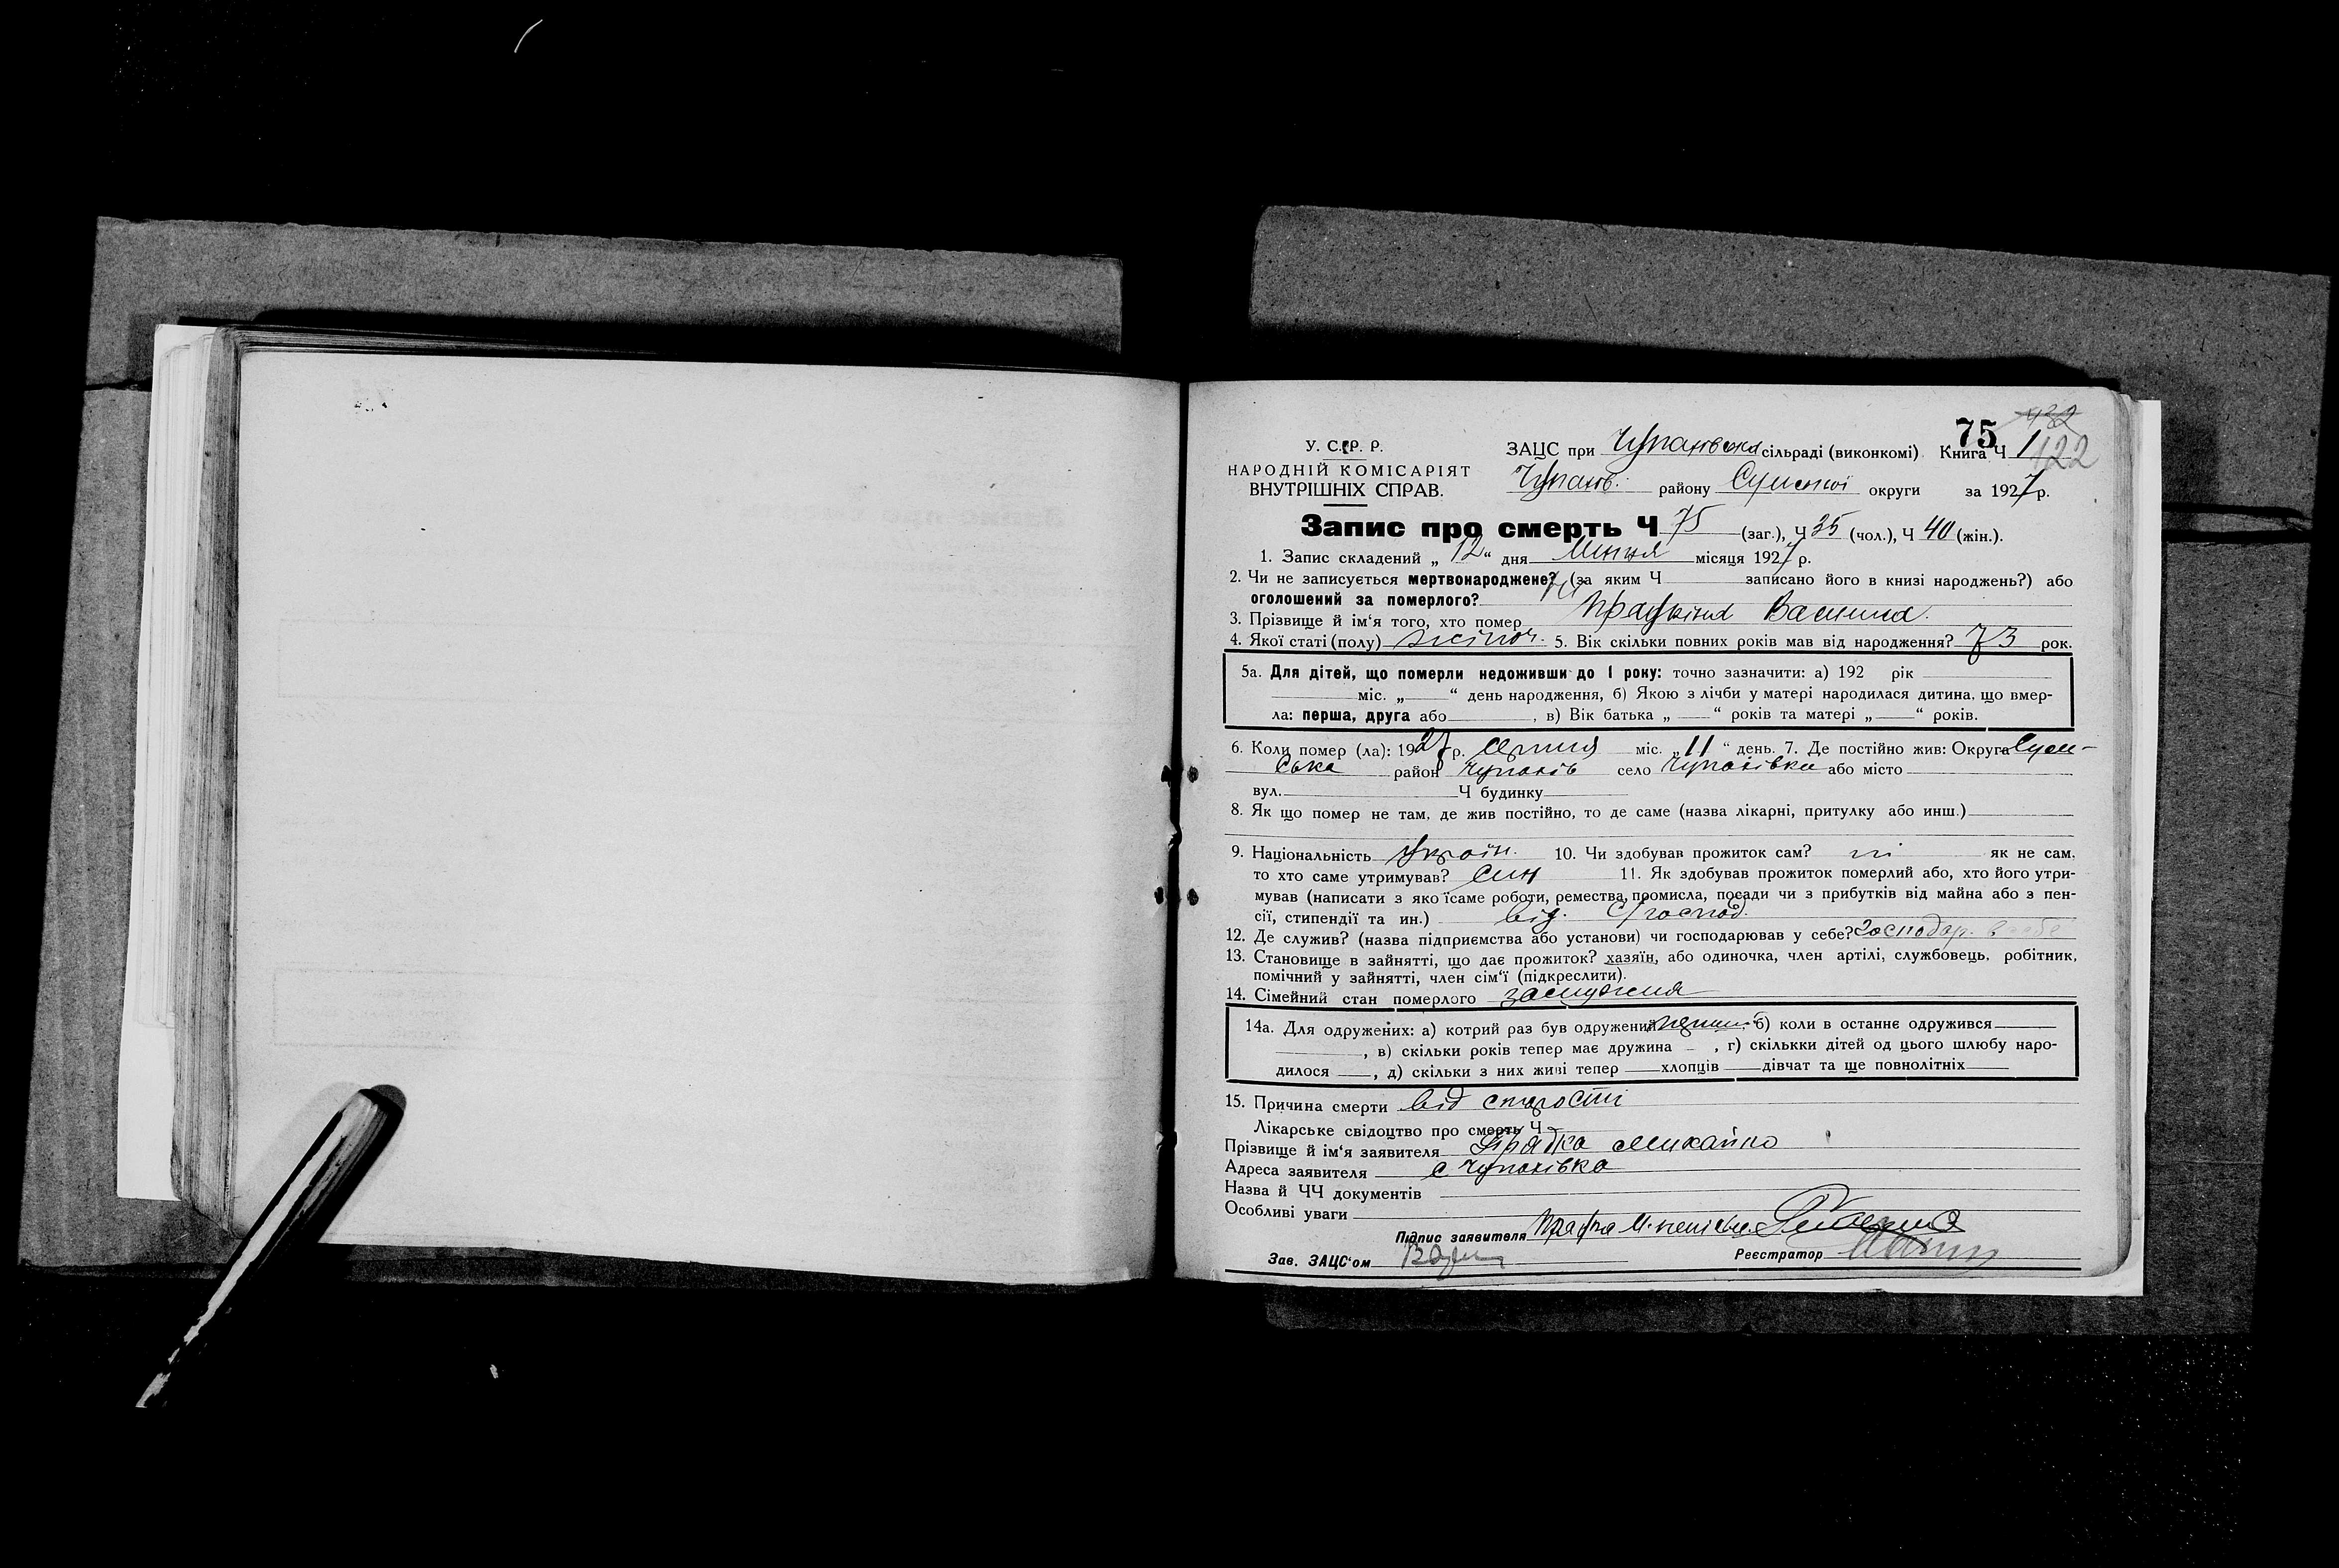 75 132
У. С. Р. Р. ЗАЦС при Чупахівській сільраді (виконкомі) Книга Ч 1 122
НАРОДНІЙ КОМІСАРІЯТ
ВНУТРІШНІХ СПРАВ. Чупахів. району Сумської округи за 1927 р.
Запис про смерть Ч 75 (заг.), Ч 35 (чол.), Ч 40 (жін.).
1. Запис складений „ 12 “ дня місяця 1927 р.
2. Чи не записується мертвонароджене? (за яким Ч записано його в книзі народжень?) або
оголошений за померлого? ні
3. Прізвище й ім‘я того, хто помер Василина
4. Якої статі (полу) жіноч. 5. Вік скільки повних років мав від народження? 73 рок.
5а. Для дітей, що померли недоживши до 1 року: точно зазначити: а) 192 рік
міс. „ “ день народження, б) Якою з лічби у матері народилася дитина, що вмер-
ла: перша, друга або , в) Вік батька „ “ років та матері „ “ років.
6. Коли помер (ла): 1927 р. серпня міс. „11“ день. 7. Де постійно жив: Округа Сум-
ська район Чупахів село Чупахівка або місто
вул. Ч будинку
8. Як що помер не там, де жив постійно, то де саме (назва лікарні, притулку або инш.)
9. Національність Україн. 10. Чи здобував прожиток сам? ні як не сам,
то хто саме утримував? син 11. Як здобував прожиток померлий або, хто його утри-
мував (написати з якоїсаме роботи, ремества, промисла, посади чи з прибутків від майна або з пен-
сії, стипендії та ин.) від. с/господ.
12. Де служив? (назва підприємства або установи) чи господарював у себе? господар. в себе
13. Становище в зайнятті, що дає прожиток? хазяїн, або одиночка, член артілі, службовець, робітник,
помічний у зайнятті, член сім‘ї (підкреслити).
14. Сімейний стан померлого замужня
14а. Для одружених: а) котрий раз був одружений перший б) коли в останнє одружився
, в) скільки років тепер має дружина – , г) скількки дітей од цього шлюбу наро-
дилося , д) скільки з них живі тепер хлопців дівчат та ще повнолітніх
15. Причина смерти від старости
Лікарське свідоцтво про смерть Ч
Прізвище й ім‘я заявителя Михайло
Адреса заявителя с Чупахівка
Назва й ЧЧ документів
Особливі уваги
Підпис заявителя
Зав. ЗАЦС‘ом Реєстратор